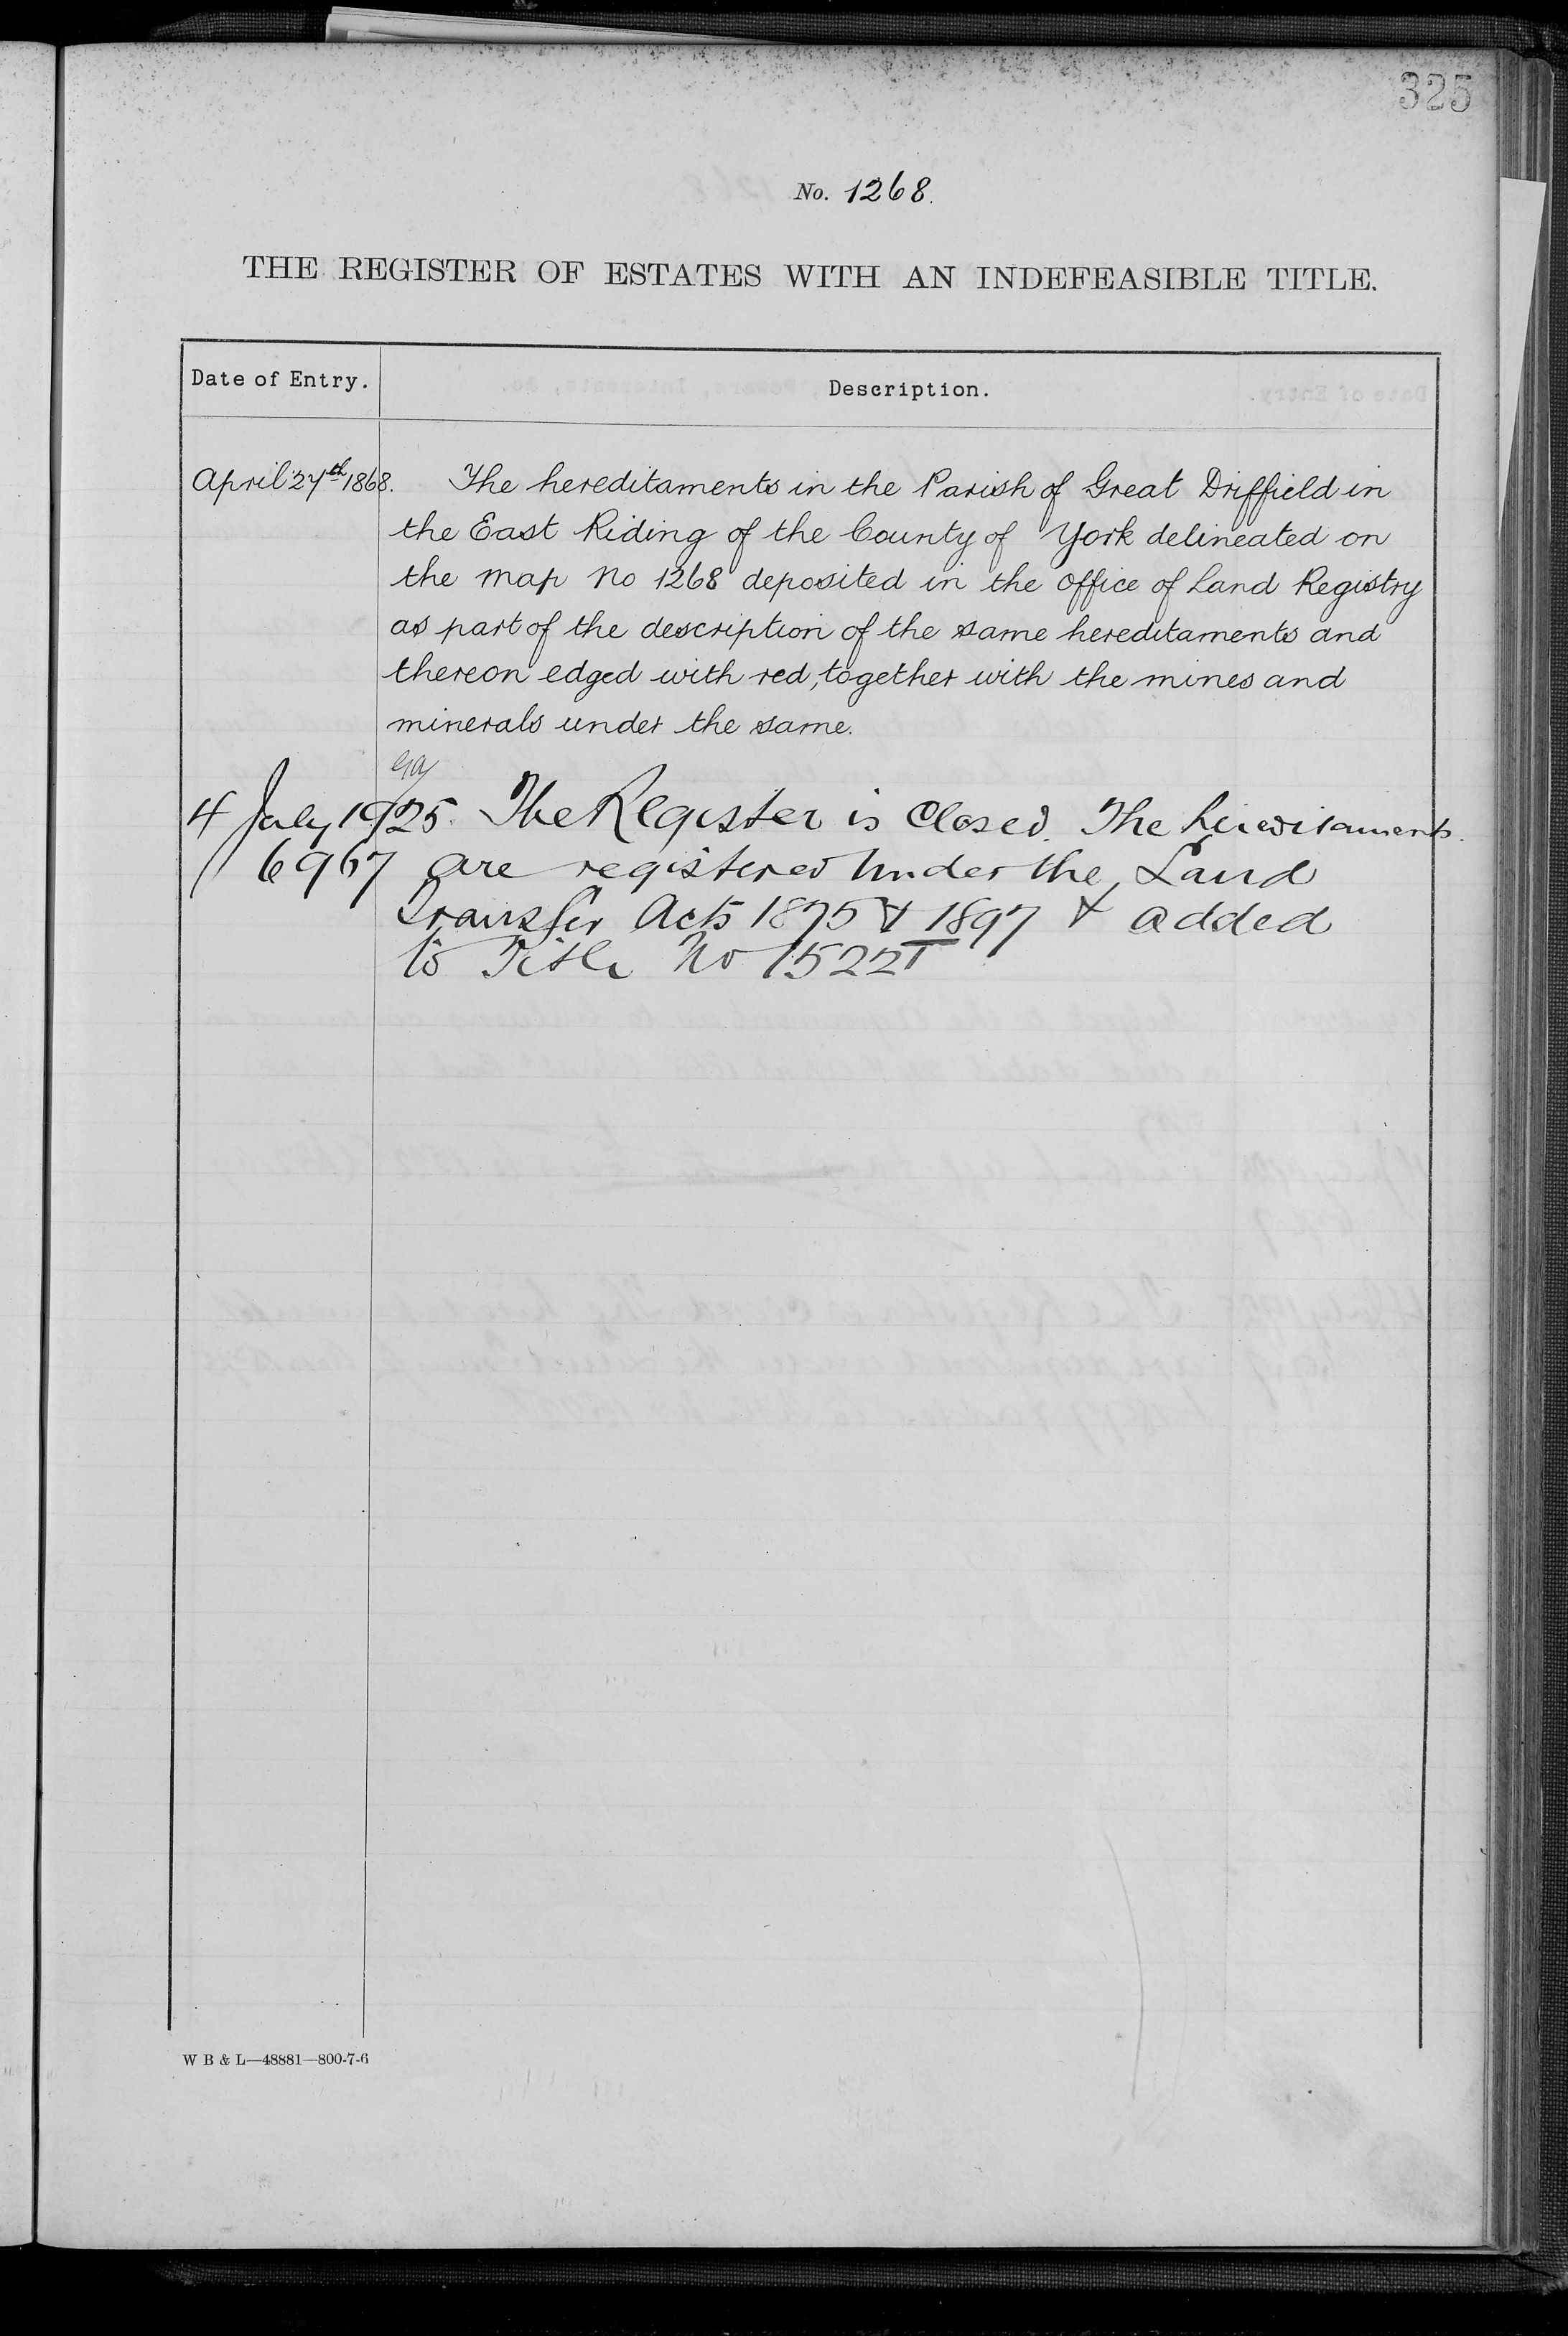 325
No. 1268.
THE REGISTER OF ESTATES WITH AN INDEFEASIBLE TITLE.
Date of Entry. Description.
April 27th 1868. The hereditaments in the Parish of Great Driffield in
the East Riding of the County of York delineated on
the map No 1268 deposited in the office of Land Registry
as part of the description of the same hereditaments and
thereon edged with red, together with the mines and
minerals under the same.
4 July 1925. The Register is Closed. The hereditaments
6967 are registered under the Land
Transfer Acts 1875 & 1897 & added
to Title No 1522T
W B & L—48881—800-7-6